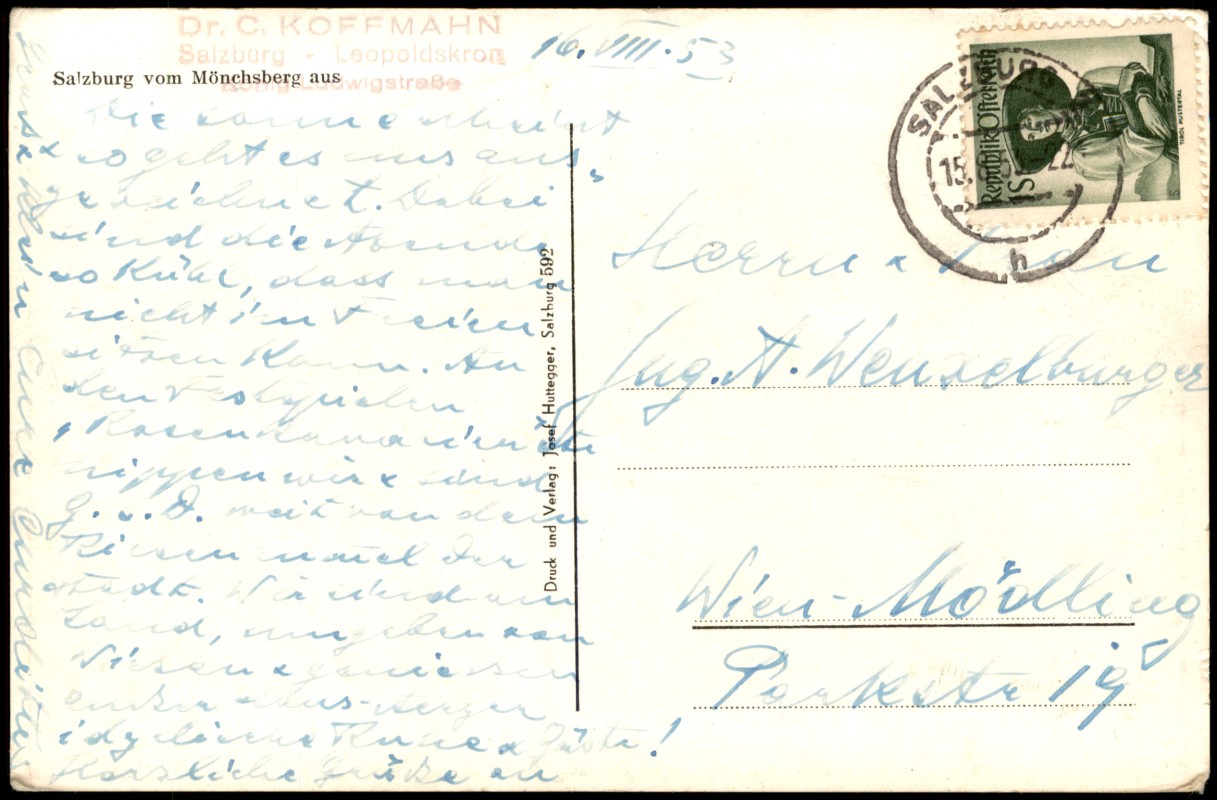 Dr. C. KOFFMAHN
Salzburg - Leopoldskron
König Ludwigstraße
Salzburg vom Mönchsberg aus
16. VIII. 53
Die Sonne scheint
so geht es uns aus-
gezeichnet. Dabei
sind die Abende
so kühl, dass man
nicht im Freien
sitzen kann. An
den Festspielen
Rosenkavalier
nippen wir & sind
G. s. D. weit von dem
Riesen der
Stadt. Wir sind am
Land, umgeben von
Wiesen & geniessen
außer Haus-Aerger
idyllische Ruhe & Gäste!
Herzliche Grüße an
& Eure
Druck und Verlag: Josef Huttegger, Salzburg 592
SALZBURG
15.
22
h
Republik Österreich
1S
TIROL PUSTERTAL
Herrn & Frau
Ing. A. Wenzelburger
Wien-Mödling
Parkstr 19